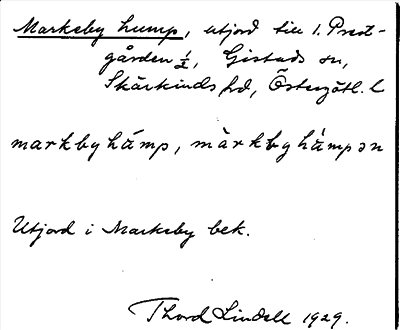 Markeby hump, utjord till 1. Prest-
gården ½, Gistads sn,
Skärkinds hd, Östergötl. l
markbyhámp, màrkbyhàmpən
Utjord i Markeby bek.
Thord Lindell 1929.